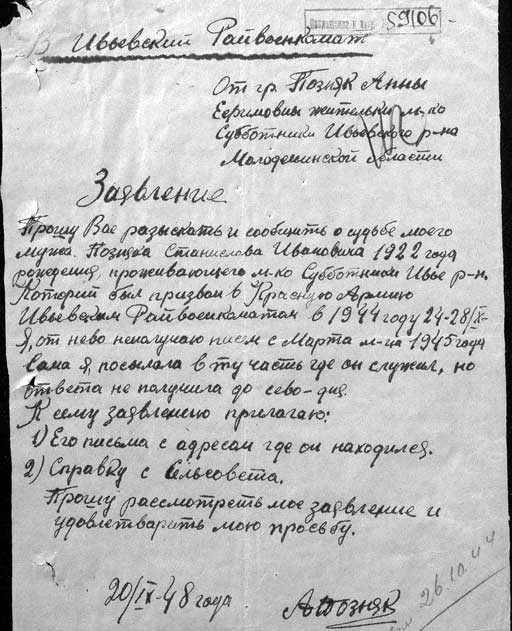 59106
В Ивьевский Райвоенкомат
От гр. Позняк Анны
Ефимовны жительки м-ко
Субботники Ивьевского р-на
Молодечинской области
Заявление
Прошу Вас разыскать и сообщить о судьбе моего
мужа. Позняка Станислова Ивановича 1922 года
рождения, проживающего м-ко Субботники Ивье р-н.
Который был призван в Красную Армию
Ивьевским Райвоенкоматам в 1944 году 24-28/IX-
Я, от нево неполучаю писем с Марта м-ца 1945 года
Сама я, посылала в ту часть где он служил, но
ответа не получила до сево-дня.
К сему заявлению прилагаю:
1) Его письма с адресам где он находился.
2) Справку с Сельсовета.
Прошу рассмотреть мое заявление и
удовлетварить мою просьбу.
20/IX-48 года
АПозняк
26.10.44